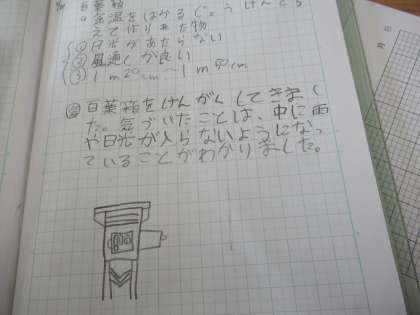 百葉箱
気温をはかるじょうけんを考
えて作りあた物
① 日光があたらない
② 風通しが良い
③ 1m20cm〜1m50cm
百葉箱をけんがくしてきまし
た。気づいたことは、中に雨
や日光が入らないようになっ
ていることがわかりました。